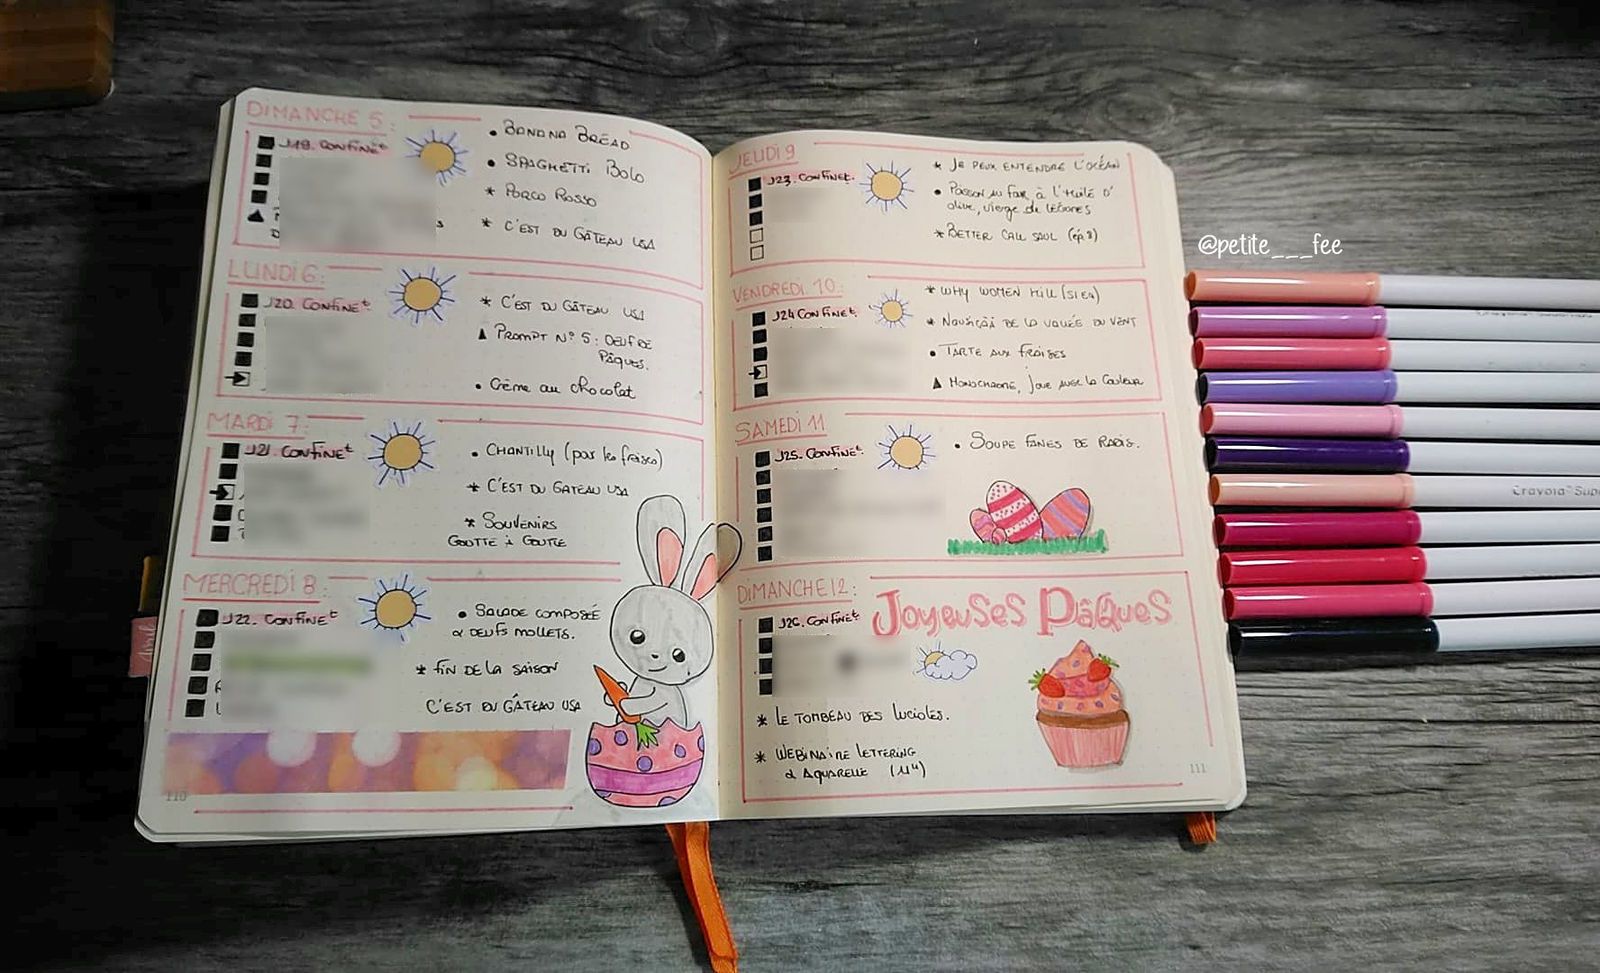 DIMANCHE 5:
J19. CONFINEt
• BANANA BREAD
• SPAGHETTI BOLO
* PORCO ROSSO
* C'EST DU GÂTEAU USA
LUNDI 6:
J20. CONFINEt
* C'EST DU GÂTEAU USA
▲ PROMPT N° 5 : OEUF DE
PÂQUES.
• Crème au chocolat
MARDI 7:
J21. CONFINEt
• CHANTILLY (pour les fraises)
* C'EST DU GATEAU USA
* SOUVENIRS
GOUTTE à GOUTTE
MERCREDI 8:
J22. CONFINEt
• SALADE COMPOSÉE
& OEUFS MOLLETS.
* FIN DE LA SAISON
C'EST DU GÂTEAU USA
110
Avril
JEUDI 9
J23. CONFINEt.
* JE PEUX ENTENDRE L'OCÉAN
• POISSON AU FOUR à L'HUILE D'
olive, vierge de LÉGUMES
* BETTER CALL SAUL (ép.8)
VENDREDI 10:
J24 CONFINEt.
* WHY WOMEN KILL (S1E4)
* NAUSICAÄ DE LA VALLÉE DU VENT
• TARTE AUX FRAISES
▲ MONOCHROME, joue avec la couleur
SAMEDI 11
J25. CONFINEt.
• SOUPE FANES DE RADIS.
DIMANCHE 12:
J26. CONFINEt
Joyeuses Pâques
* LE TOMBEAU DES LUCIOLES.
* WEBINAIRE LETTERING
& AQUARELLE (11H)
111
@petite___fee
Crayola Sup